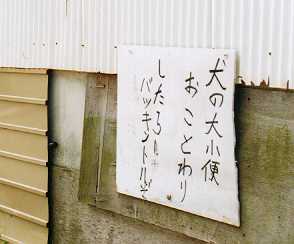 犬の大小便
おことわり
したら
バッキントルゾ